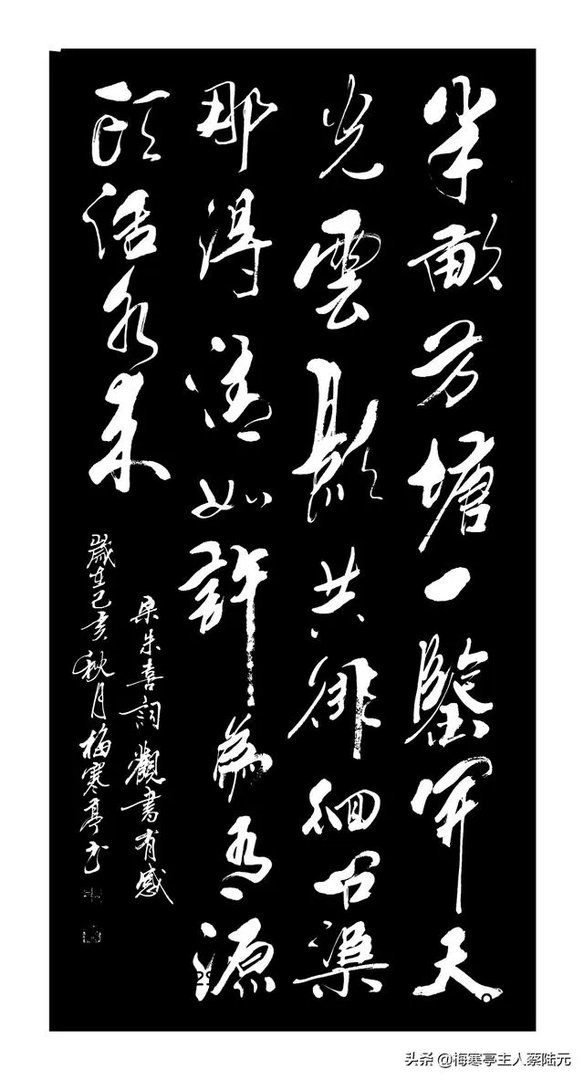 半畝方塘一鑒開天
光雲影共徘徊問渠
那得清如許為有源
頭活水来
宋朱喜詞觀書有感
歲在己亥秋月梅寒亭书
头条 @梅寒亭主人蔡陆元